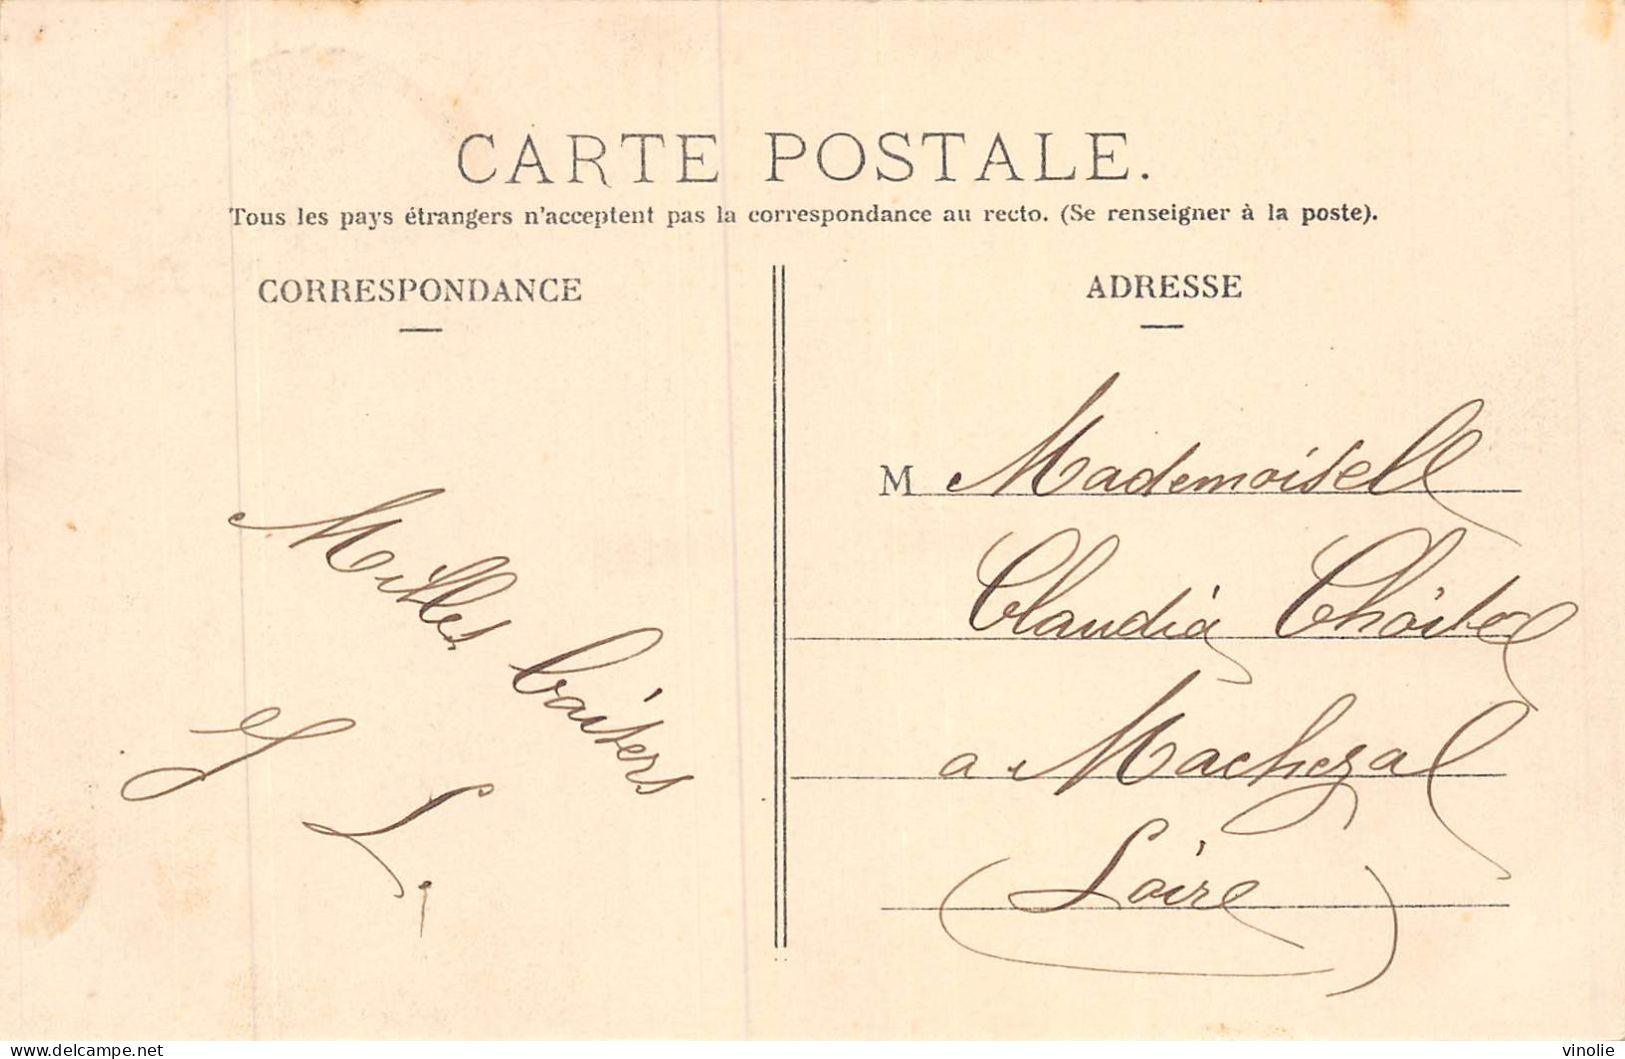 CARTE POSTALE.
Tous les pays étrangers n'acceptent pas la correspondance au recto. (Se renseigner à la poste).
CORRESPONDANCE
Milles baisers
J L.
ADRESSE
M Mademoiselle
Claudia
a Machezal
(Loire)
www.delcampe.net
vinolie